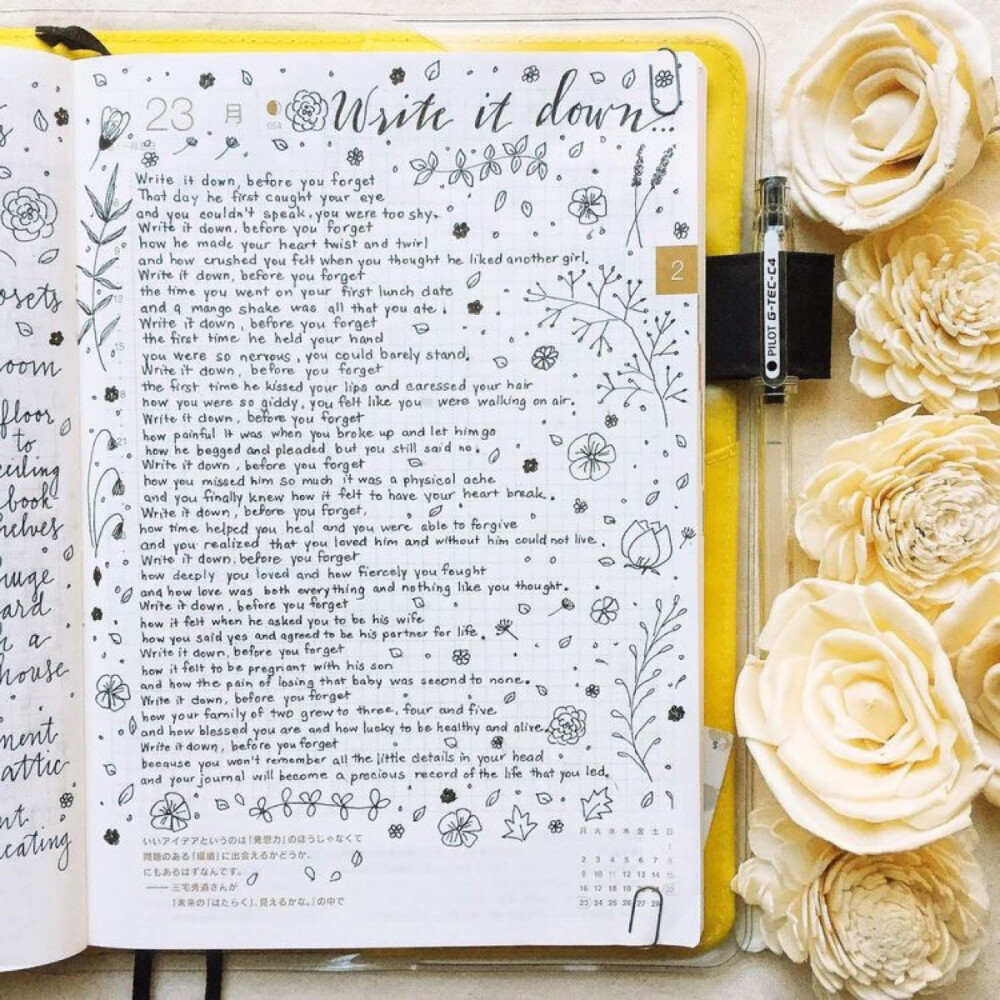 osets
oom
floor
to
ceiling
book
helves
huge
ard
a
house
ment
attic
eating
23 月
Write it down...
Write it down, before you forget
That day he first caught your eye
and you couldn't speak, you were too shy.
Write it down, before you forget
how he made your heart twist and twirl
and how crushed you felt when you thought he liked another girl.
Write it down, before you forget
the time you went on your first lunch date
and a mango shake was all that you ate.
Write it down, before you forget
the first time he held your hand
you were so nervous, you could barely stand.
Write it down, before you forget
the first time he kissed your lips and caressed your hair
how you were so giddy, you felt like you were walking on air.
Write it down, before you forget
how painful it was when you broke up and let him go
how he begged and pleaded but you still said no.
Write it down, before you forget
how you missed him so much it was a physical ache
and you finally knew how it felt to have your heart break.
Write it down, before you forget,
how time helped you heal and you were able to forgive
and you realized that you loved him and without him could not live.
Write it down, before you forget
how deeply you loved and how fiercely you fought
and how love was both everything and nothing like you thought.
Write it down, before you forget
how it felt when he asked you to be his wife
how you said yes and agreed to be his partner for life.
Write it down, before you forget
how it felt to be pregnant with his son
and how the pain of losing that baby was second to none.
Write it down, before you forget
how your family of two grew to three, four and five
and how blessed you are and how lucky to be healthy and alive.
Write it down, before you forget
because you won't remember all the little details in your head
and your journal will become a precious record of the life that you led.
2
PILOT G-TEC-C4
9
12
15
18
21
いいアイデアというのは「発想力」のほうじゃなくて
問題のある「環境」に出会えるかどうか、
にもあるはずなんです。
—— 三宅秀道さんが
『未来の「はたらく」、見えるかな。』の中で
月 火 水 木 金 土 日
1
2 3 4 5 6 7 8
9 10 11 12 13 14 15
16 17 18 19 20 21 22
23 24 25 26 27 28